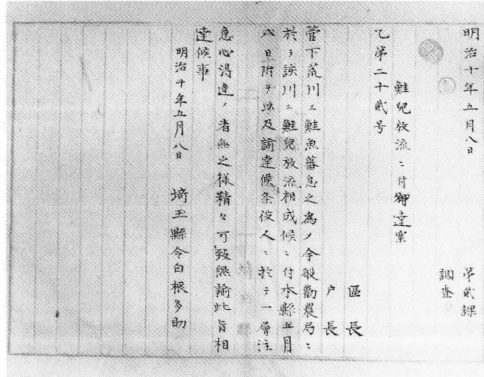 明治十年五月八日
第貳課
調查
鮭兒放流ニ付御達案
乙第二十貳号
區長
戸長
管下荒川ニ鮭魚蕃息之為メ今般勸農局ニ
於テ該川ニ鮭兒放流相成候ニ付本縣五月
八日附ヲ以及諭達候条役人ニ於テ一層注
意心得違ノ者無之様精々可致懇諭此旨相
達候事
明治十年五月八日
埼玉縣令白根多助